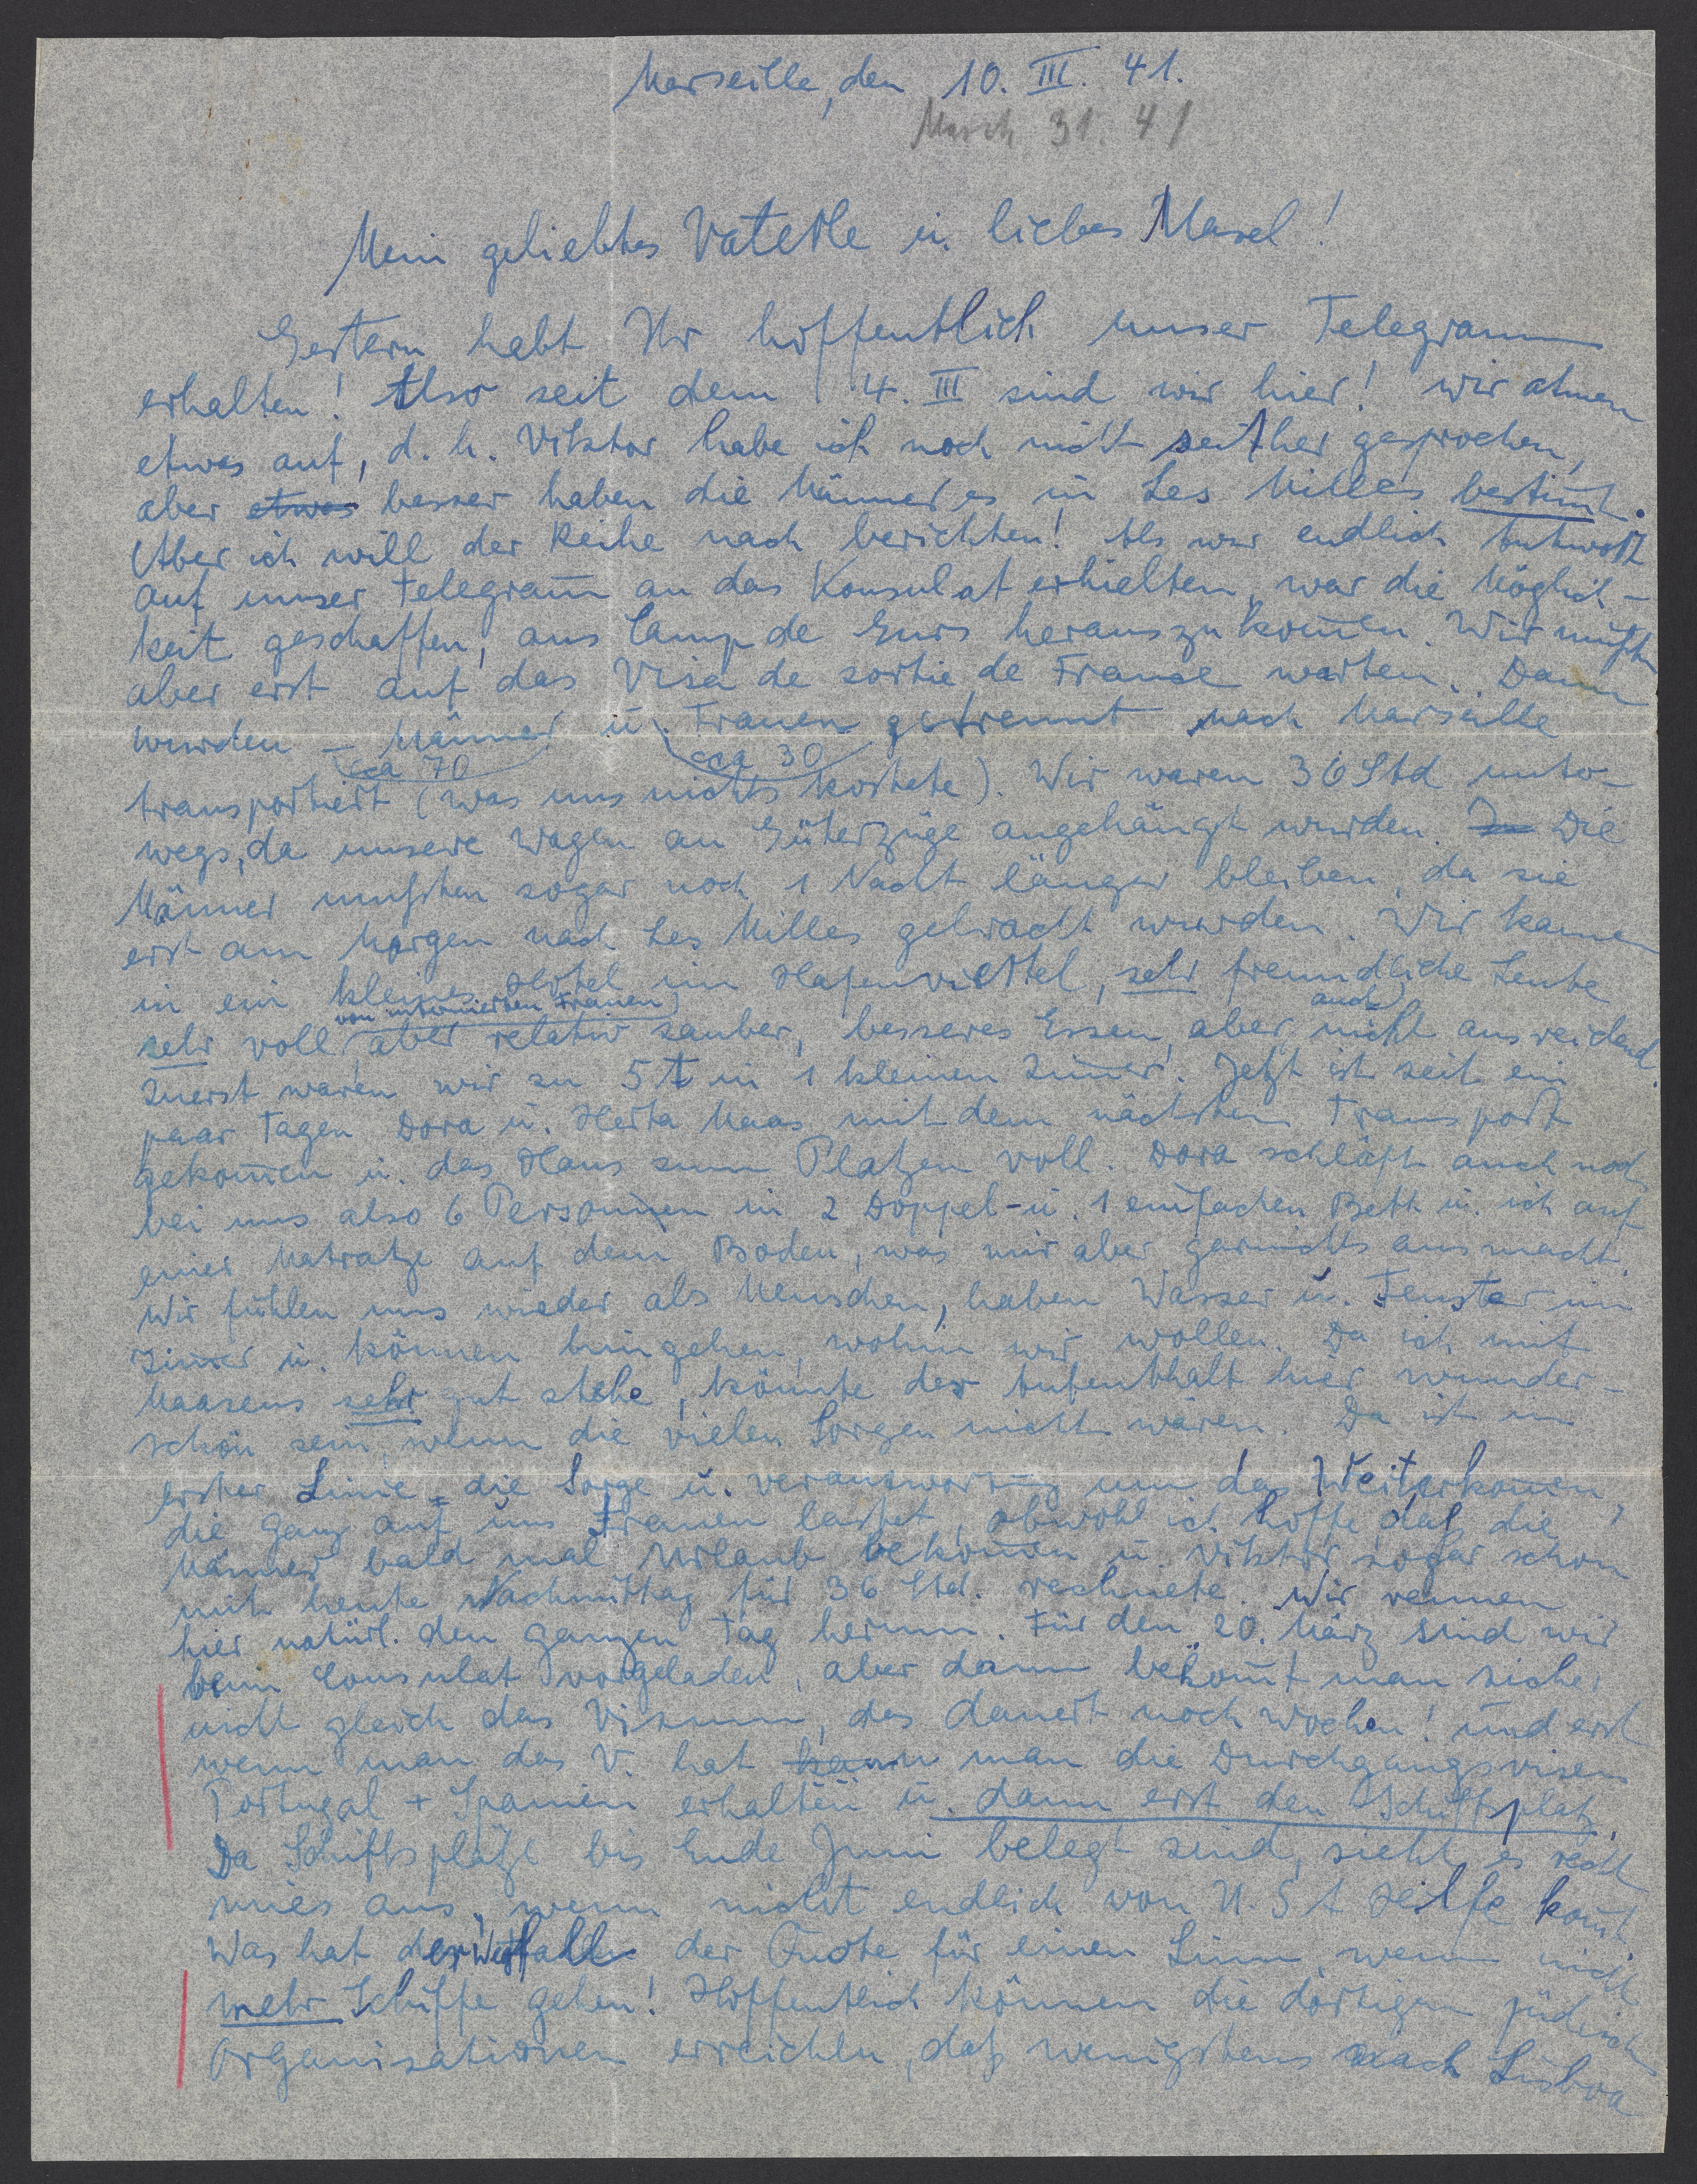 Marseille, den 10. III. 41.
March 31. 41
Mein geliebtes Vaterle u. liebes Masel!
Gestern habt Ihr hoffentlich unser Telegramm
erhalten! Also seit dem 4. III sind wir hier! Wir atmen
etwas auf, d. h. Viktor habe ich noch nicht seither gesprochen,
aber etwas besser haben die Männer es in Les Milles bestimt.
Aber ich will der Reihe nach berichten! Als wir endlich Antwort
auf unser Telegram an das Konsulat erhielten, war die Möglich-
keit geschaffen, aus Camp de Gurs herauszukomen. Wir mußten
aber erst auf das Visa de sortie de France warten. Dann
wurden - Männer u. Frauen getrennt nach Marseille
cca 70 cca 30
transportiert (was uns nichts kostete). Wir waren 36 Std unter-
wegs, da unsere Wagen an Güterzüge angehängt wurden. Die
Männer mußten sogar noch 1 Nacht länger bleiben, da sie
erst am Morgen nach Les Milles gebracht wurden. Wir kamen
in ein kleines Hotel im Hafenviertel, sehr freundliche Leute
von internierten Frauen auch
sehr voll, aber relativ sauber, besseres Essen, aber nicht ausreichend.
Zuerst waren wir zu 5t in 1 kleinen Zimer. Jetzt ist seit ein
paar Tagen Dora u. Herta Maas mit dem nächsten Transport
gekomen u. das Haus zum Platzen voll. Dora schläft auch noch
bei uns also 6 Personnen in 2 Doppel- u. 1 einfachen Bett u. ich auf
einer Matratze auf dem Boden, was mir aber garnichts ausmacht.
Wir fühlen uns wieder als Menschen, haben Wasser u. Fenster im
Zimer u. können hingehen, wohin wir wollen. Da ich mit
Maasens sehr gut stehe, könnte der Aufenthalt hier wunder-
schön sein, wenn die vielen Sorgen nicht wären. Da ist in
erster Linie die Sorge u. Verantwortung um das Weiterkomen,
die ganz auf uns Frauen lastet, obwohl ich hoffe daß die
Männer bald mal Urlaub bekomen u. Viktor sogar schon
mit heute Nachmittag für 36 Std. rechnete. Wir rennen
hier natürl. den ganzen Tag herum. Für den 20. März sind wir
beim Consulat vorgeladen, aber dann bekomt man sicher
nicht gleich das Visum, das dauert noch Wochen! Und erst
wenn man das V. hat kann man die Durchgangsvisen
Portugal + Spanien erhalten u. dann erst den Schiffsplatz.
Da Schiffsplätze bis Ende Juni belegt sind, sieht es recht
mies aus, wenn nicht endlich von U. S A Hilfe komt.
Was hat der Wegfall der Quote für einen Sinn, wenn nicht
mehr Schiffe gehen! Hoffentlich können die dortigen jüdischen
Organisationen erreichen, daß wenigstens nach Lisboa